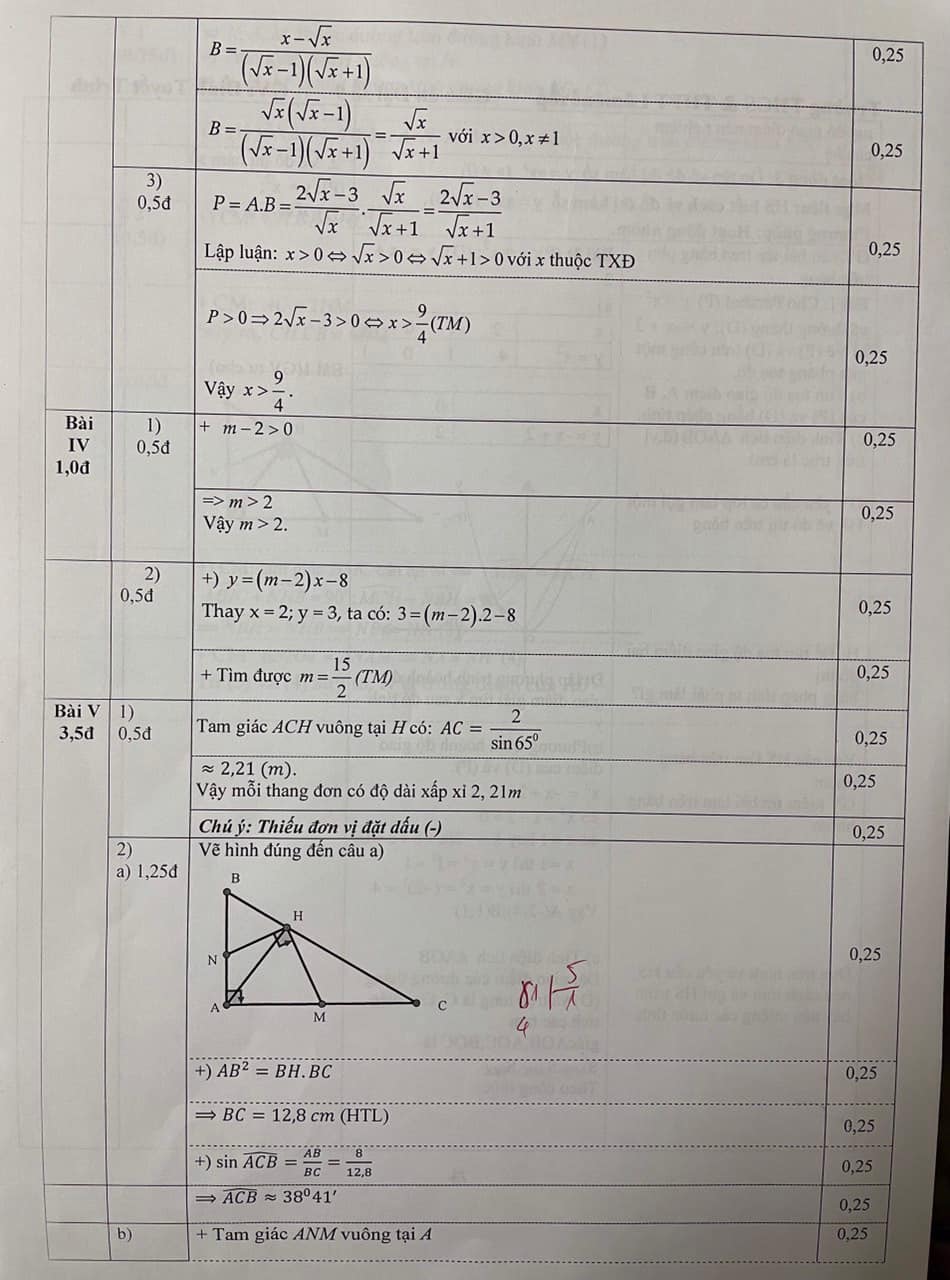 B = \frac{x-\sqrt{x}}{(\sqrt{x}-1)(\sqrt{x}+1)} 0,25
B = \frac{\sqrt{x}(\sqrt{x}-1)}{(\sqrt{x}-1)(\sqrt{x}+1)} = \frac{\sqrt{x}}{\sqrt{x}+1} với x > 0, x ≠ 1 0,25
3) 0,5đ
P = A.B = \frac{2\sqrt{x}-3}{\sqrt{x}} . \frac{\sqrt{x}}{\sqrt{x}+1} = \frac{2\sqrt{x}-3}{\sqrt{x}+1}
Lập luận: x > 0 ⇔ √x > 0 ⇔ √x + 1 > 0 với x thuộc TXĐ 0,25
P > 0 ⇒ 2√x − 3 > 0 ⇔ x > \frac{9}{4} (TM) 0,25
Vậy x > \frac{9}{4}.
Bài IV 1,0đ
1) 0,5đ
+ m − 2 > 0 0,25
=> m > 2 0,25
Vậy m > 2.
2) 0,5đ
+) y = (m − 2)x − 8
Thay x = 2; y = 3, ta có: 3 = (m − 2).2 − 8 0,25
+ Tìm được m = \frac{15}{2} (TM) 0,25
Bài V 3,5đ
1) 0,5đ
Tam giác ACH vuông tại H có: AC = \frac{2}{\sin 65^0} 0,25
≈ 2,21 (m). 0,25
Vậy mỗi thang đơn có độ dài xấp xỉ 2, 21m
Chú ý: Thiếu đơn vị đặt dấu (-) 0,25
2)
a) 1,25đ
Vẽ hình đúng đến câu a) 0,25
B
H
N
A
M
C
+) AB² = BH. BC 0,25
⟹ BC = 12,8 cm (HTL) 0,25
+) sin \widehat{ACB} = \frac{AB}{BC} = \frac{8}{12,8} 0,25
⟹ \widehat{ACB} ≈ 38⁰41′ 0,25
b)
+ Tam giác ANM vuông tại A 0,25